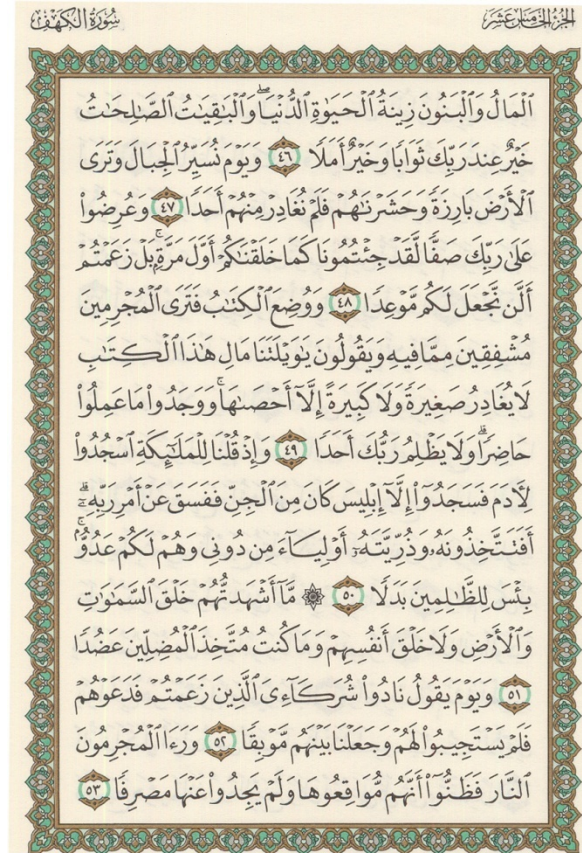 الجزء الخامس عشر
سورة الكهف
ٱلْمَالُ وَٱلْبَنُونَ زِينَةُ ٱلْحَيَوٰةِ ٱلدُّنْيَاۖ وَٱلْبَٰقِيَٰتُ ٱلصَّٰلِحَٰتُ
خَيْرٌ عِندَ رَبِّكَ ثَوَابًا وَخَيْرٌ أَمَلًا ٤٦ وَيَوْمَ نُسَيِّرُ ٱلْجِبَالَ وَتَرَى
ٱلْأَرْضَ بَارِزَةً وَحَشَرْنَٰهُمْ فَلَمْ نُغَادِرْ مِنْهُمْ أَحَدًا ٤٧ وَعُرِضُوا۟
عَلَىٰ رَبِّكَ صَفًّا لَّقَدْ جِئْتُمُونَا كَمَا خَلَقْنَٰكُمْ أَوَّلَ مَرَّةٍۭۚ بَلْ زَعَمْتُمْ
أَلَّن نَّجْعَلَ لَكُم مَّوْعِدًا ٤٨ وَوُضِعَ ٱلْكِتَٰبُ فَتَرَى ٱلْمُجْرِمِينَ
مُشْفِقِينَ مِمَّا فِيهِ وَيَقُولُونَ يَٰوَيْلَتَنَا مَالِ هَٰذَا ٱلْكِتَٰبِ
لَا يُغَادِرُ صَغِيرَةً وَلَا كَبِيرَةً إِلَّآ أَحْصَىٰهَاۚ وَوَجَدُوا۟ مَا عَمِلُوا۟
حَاضِرًاۗ وَلَا يَظْلِمُ رَبُّكَ أَحَدًا ٤٩ وَإِذْ قُلْنَا لِلْمَلَٰٓئِكَةِ ٱسْجُدُوا۟
لِءَادَمَ فَسَجَدُوٓا۟ إِلَّآ إِبْلِيسَ كَانَ مِنَ ٱلْجِنِّ فَفَسَقَ عَنْ أَمْرِ رَبِّهِۦٓۗ
أَفَتَتَّخِذُونَهُۥ وَذُرِّيَّتَهُۥٓ أَوْلِيَآءَ مِن دُونِى وَهُمْ لَكُمْ عَدُوٌّۢۚ
بِئْسَ لِلظَّٰلِمِينَ بَدَلًا ٥٠ ۞ مَّآ أَشْهَدتُّهُمْ خَلْقَ ٱلسَّمَٰوَٰتِ
وَٱلْأَرْضِ وَلَا خَلْقَ أَنفُسِهِمْ وَمَا كُنتُ مُتَّخِذَ ٱلْمُضِلِّينَ عَضُدًا
٥١ وَيَوْمَ يَقُولُ نَادُوا۟ شُرَكَآءِىَ ٱلَّذِينَ زَعَمْتُمْ فَدَعَوْهُمْ
فَلَمْ يَسْتَجِيبُوا۟ لَهُمْ وَجَعَلْنَا بَيْنَهُم مَّوْبِقًا ٥٢ وَرَءَا ٱلْمُجْرِمُونَ
ٱلنَّارَ فَظَنُّوٓا۟ أَنَّهُم مُّوَاقِعُوهَا وَلَمْ يَجِدُوا۟ عَنْهَا مَصْرِفًا ٥٣